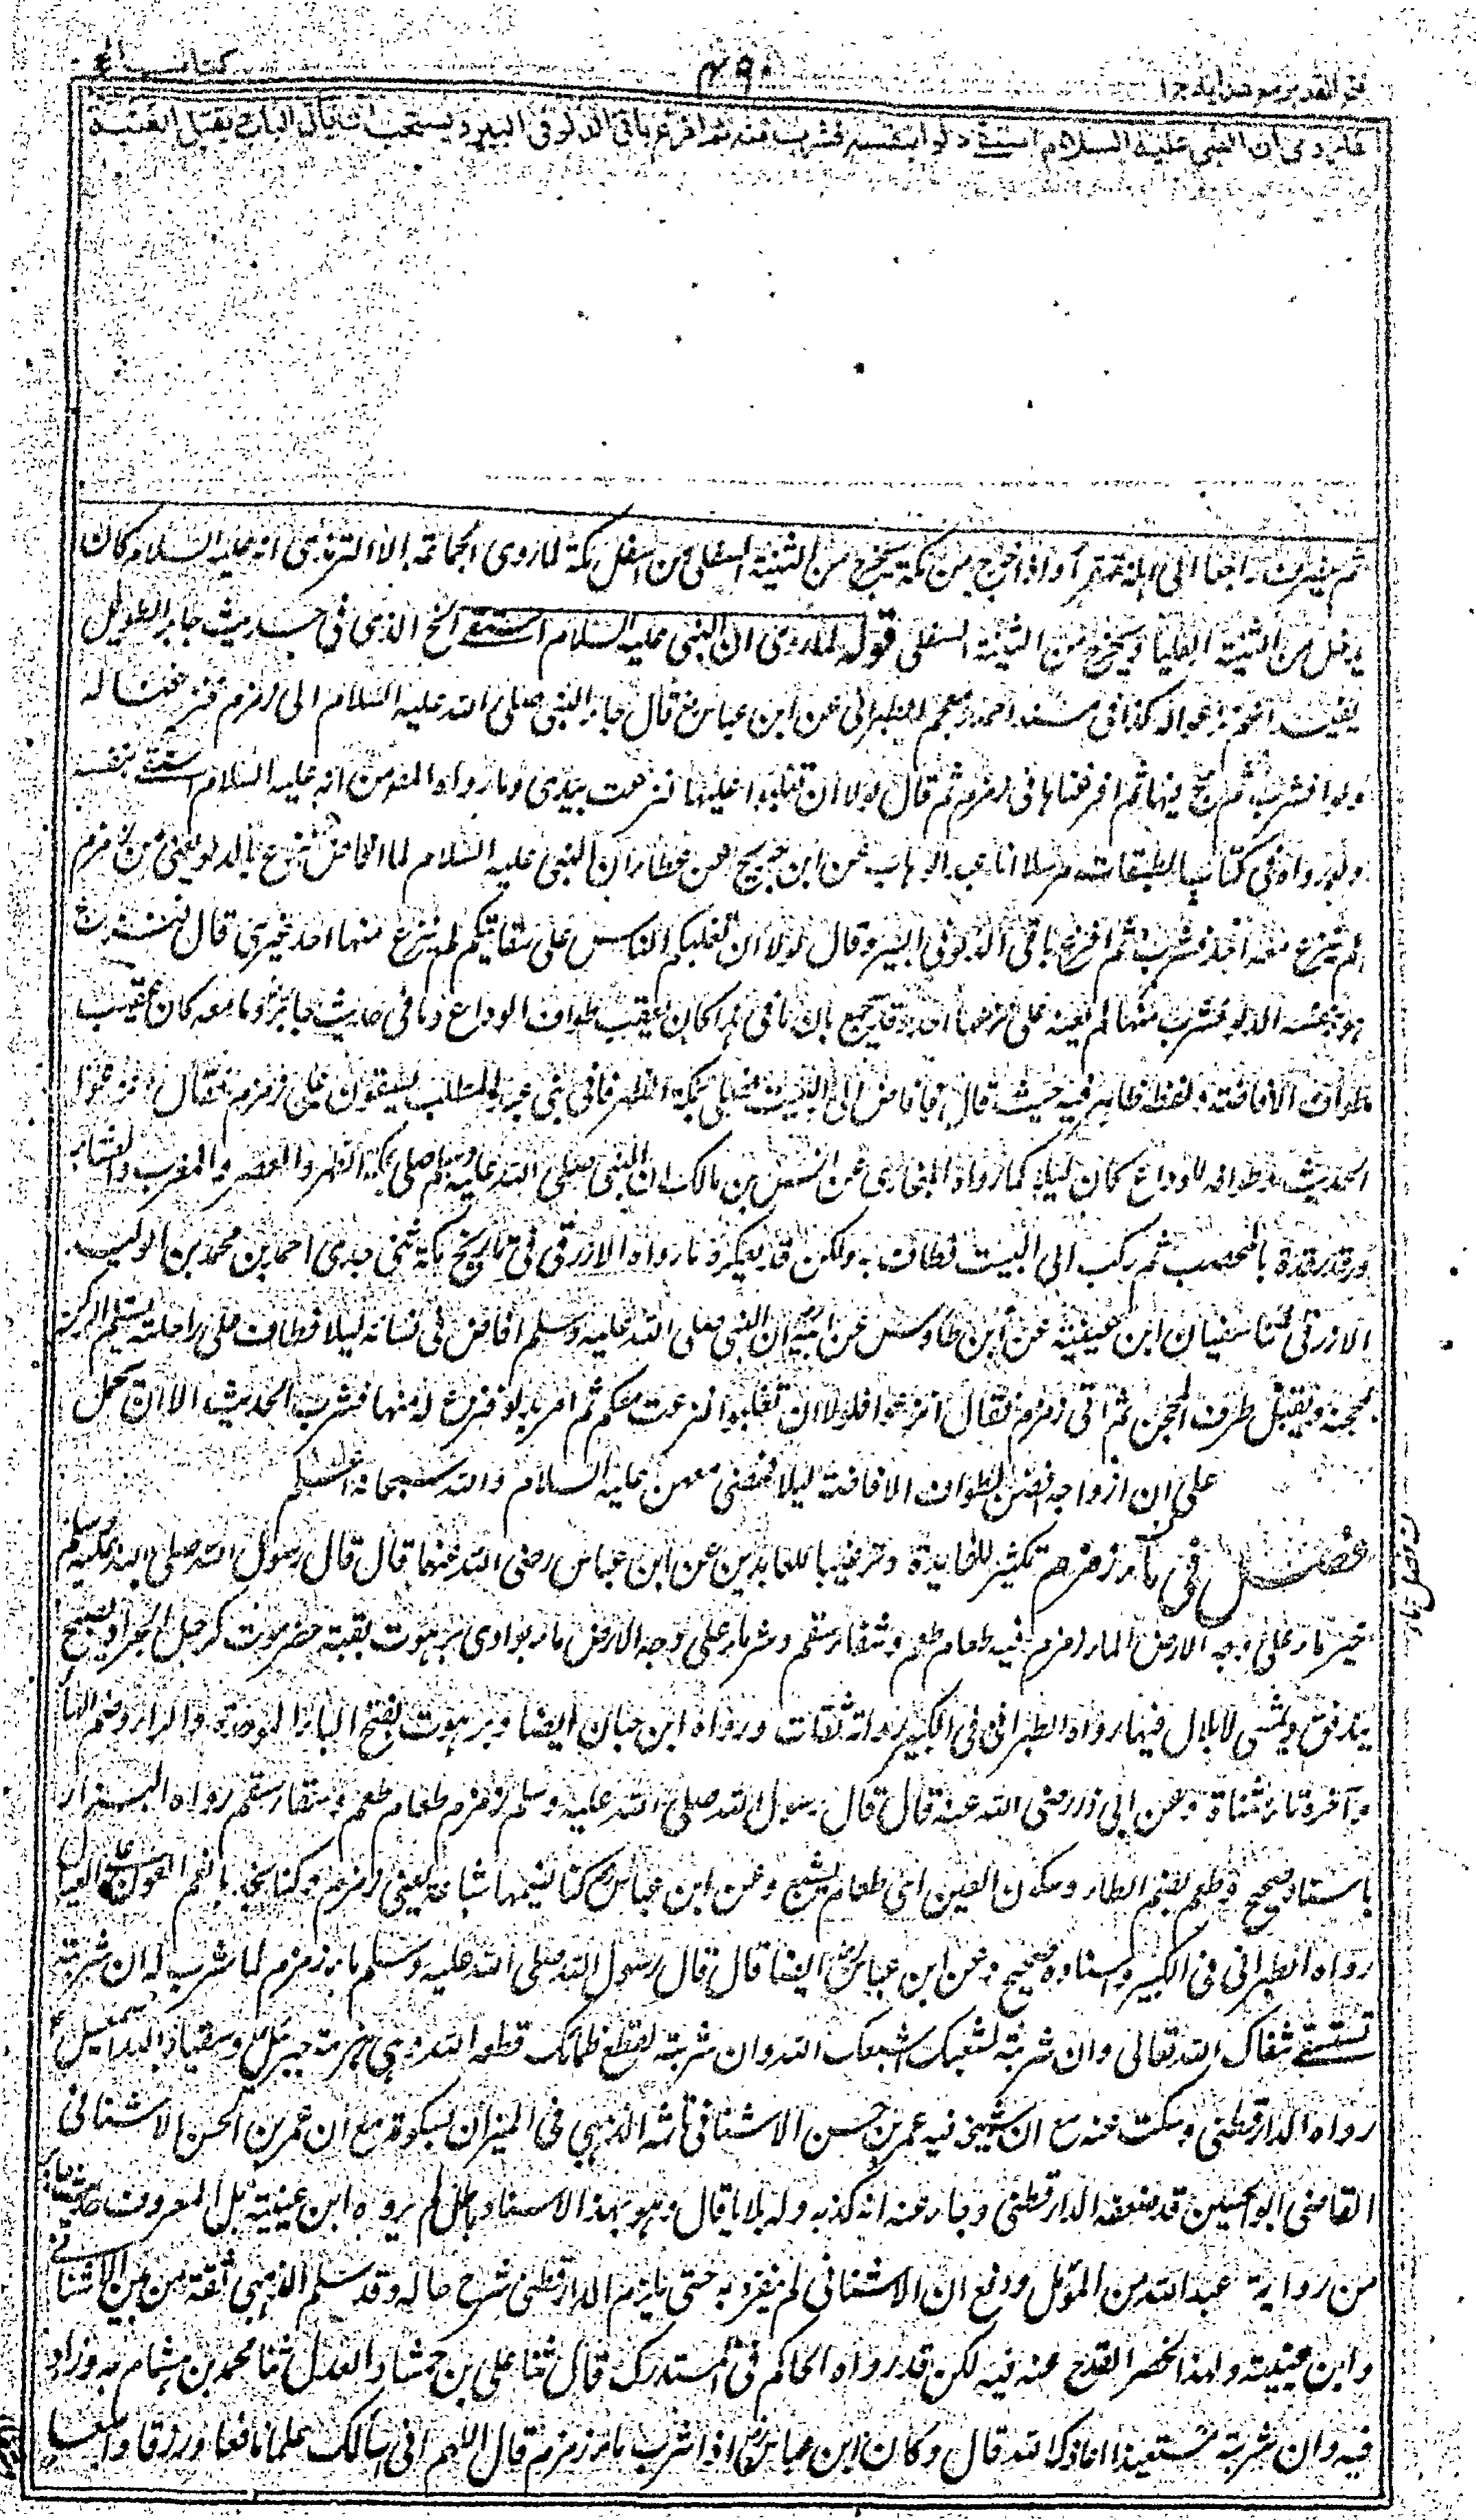 فتح القدير مع هداية ج ١
٤٩٠
كتاب الحج
لما روى ان النبي عليه السلام استقى دلوا بنفسه فشرب منه ثم افرغ باقي الدلو في البير ويستحب ان ياتي الباب ويقبل العتبة
ثم ينصرف راجعا الى اهله واذا خرج من مكة يخرج من الثنية السفلى من اسفل مكة لما روى الجماعة الا الترمذي انه عليه السلام كان
يدخل من الثنية العليا ويخرج من الثنية السفلى قوله لما روى ان النبي عليه السلام استقى الخ الذي في حديث جابر الطويل
يفيد انهم نزعوا له كذا في مسند احمد ومعجم الطبراني عن ابن عباس رض قال جاء النبي صلى الله عليه السلام الى زمزم فنزعنا له
دلوا فشرب ثم مج فيها ثم افرغناها في زمزم ثم قال لولا ان تغلبوا عليها لنزعت بيدي وما رواه المصنف من انه عليه السلام استقى بنفسه
دلوا رواه في كتاب الطبقات مرسلا انا عبد الوهاب عن ابن جريج عن عطاء ان النبي عليه السلام لما افاض نزع بالدلو يعني من زمزم
لم ينزع معه احد فشرب ثم افرغ باقي الدلو في البير وقال لولا ان تغلبكم الناس على سقايتكم لم ينزع منها احد غيري قال فنزع
هو بنفسه الدلو فشرب منها لم يعنه على نزعها احد وقد يجمع بان ما في هذا كان بعقيب طواف الوداع وما في حديث جابر وما معه كان عقيب
طواف الافاضة ولفظه ظاهر فيه حيث قال فافاض الى البيت فصلى بمكة الظهر فاتى بني عبد المطلب يسقون على زمزم فقال انزعوا
الحديث وطوافه للوداع كان ليلا كما رواه البخاري عن انس بن مالك ان النبي صلى الله عليه وسلم صلى الظهر والعصر والمغرب والعشاء
ورقد رقدة بالمحصب ثم ركب الى البيت فطاف به ولكن قد يعكره ما رواه الازرقي في تاريخ مكة ثني جدي احمد بن محمد بن الوليد
الازرقي ثنا سفيان ابن عيينة عن ابن طاوس عن ابيه ان النبي صلى الله عليه وسلم افاض في نسائه ليلا فطاف على راحلته يستلم الركن
بمحجنه ويقبل طرف المحجن ثم اتى زمزم فقال انزعوا فلولا ان تغلبوا لنزعت معكم ثم امر بدلو فنزع له منها فشرب الحديث الا ان يحمل
على ان ازواجه افضن لطواف الافاضة ليلا فمضى معهن عليه السلام والله سبحانه اعلم
فصل في ماء زمزم تكثير للفايدة وترغيبا للعابدين عن ابن عباس رضي الله عنهما قال قال رسول الله صلى الله عليه وسلم
خير ماء على وجه الارض ماء زمزم فيه طعام طعم وشفاء سقم وشر ماء على وجه الارض ماء بوادي برهوت بقبة حضرموت كرجل الجراد يصبح
يتدفق ويمسي لا بلال فيها رواه الطبراني في الكبير رواته ثقات ورواه ابن حبان ايضا وبرهوت بفتح الباء الموحدة والراء وضم الهاء
وآخره تاء مثناة وعن ابي ذر رضي الله عنه قال قال رسول الله صلى الله عليه وسلم زمزم طعام طعم وشفاء سقم رواه البزار
باسناد صحيح وطعم بضم الطاء وسكون العين اي طعام يشبع وعن ابن عباس رض كنا نسميها شباعة يعني زمزم وكنا نجدها نعم العون على العيال
رواه الطبراني في الكبير واسناده صحيح وعن ابن عباس رض ايضا قال قال رسول الله صلى الله عليه وسلم ماء زمزم لما شرب له ان شربته
تستشفي شفاك الله تعالى وان شربته لشبعك اشبعك الله وان شربته لقطع ظمائك قطعه الله وهي هزمة جبرئيل وسقيا الله اسمعيل
رواه الدارقطني وسكت عنه مع ان شيخه فيه عمر بن حسن الاشناني فاثمه الذهبي في الميزان بسكوته مع ان عمر بن الحسن الاشناني
القاضي ابو الحسين قد ضعفه الدارقطني وجاء عنه انه كذبه وله بلايا قال وهو بهذا الاسناد باطل لم يروه ابن عيينة بل المعروف حديث جابر
من رواية عبد الله بن المؤمل ودفع ان الاشناني لم ينفرد به حتى يلزم الدارقطني شرح حاله وقد سلم الذهبي ثقة من بين الاشناني
وابن عيينة ولهذا انحصر القدح عنه فيه لكن قد رواه الحاكم في المستدرك قال ثنا علي بن حمشاد العدل ثنا محمد بن هشام به وزاد
فيه وان شربته مستعيذا اعاذك الله قال وكان ابن عباس رض اذا شرب ماء زمزم قال اللهم اني اسالك علما نافعا ورزقا واسعا